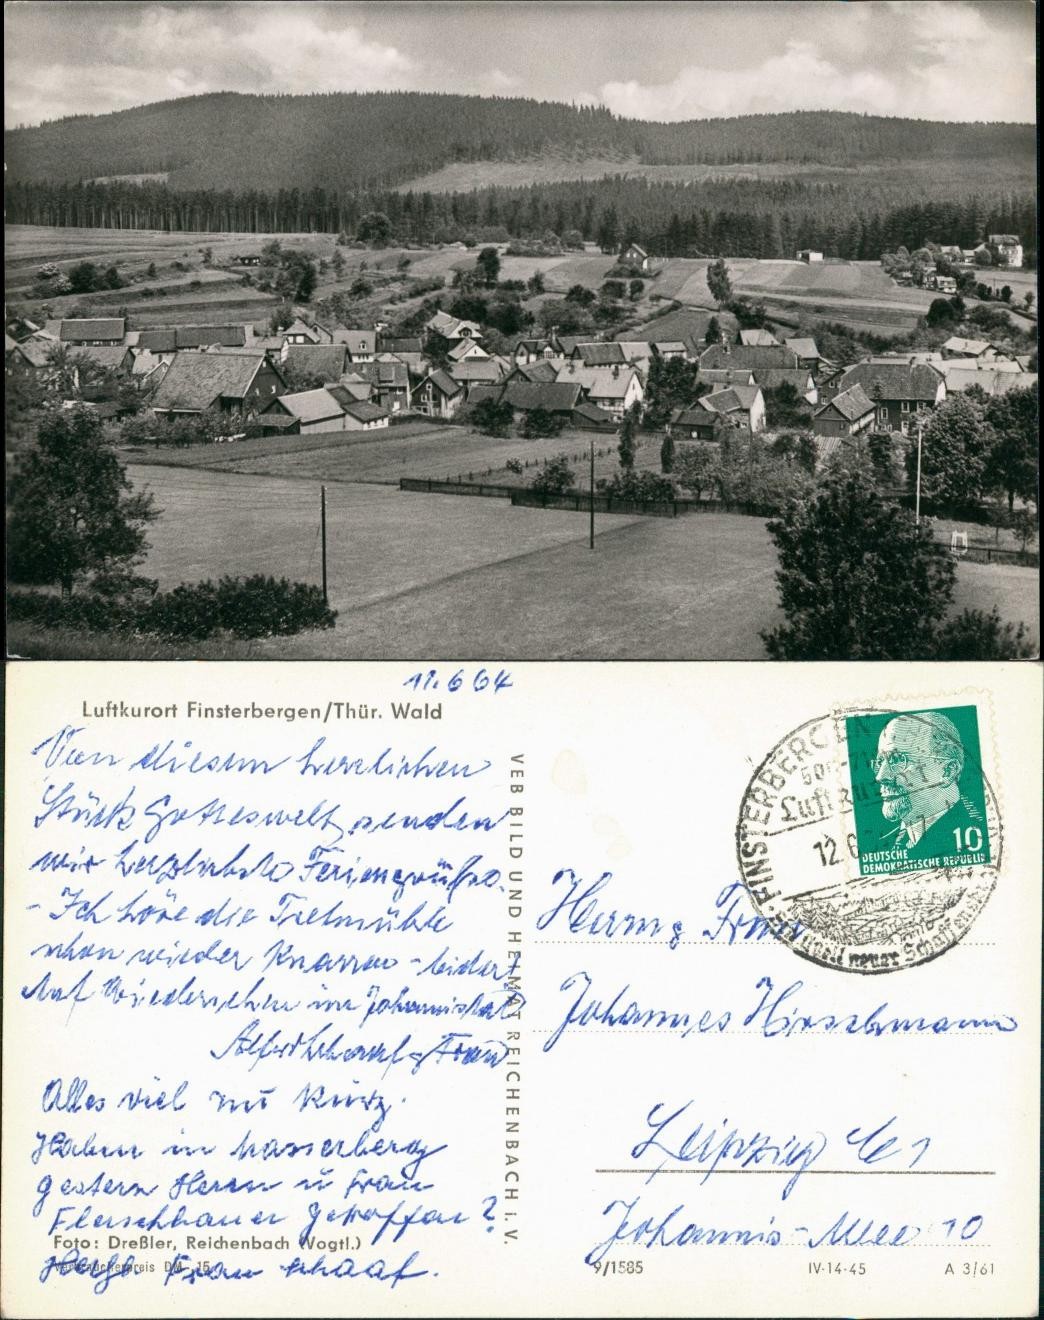 11.6 64
Luftkurort Finsterbergen/Thür. Wald
Von diesem herrlichen
Stück Gotteswelt senden
wir herzlichste Feriengrüße.
- Ich höre die Tretmühle
schon wieder knarren - leider!
Auf Wiedersehen im Johannistal
Alfred Schaaf u. Frau
Alles viel zu kurz.
Haben in Masserberg
gestern Herrn u Frau
Fleischhauer getroffen
Foto: Dreßler, Reichenbach (Vogtl.)
Verbraucherpreis DM -,15
Frau Schaaf.
VEB BILD UND HEIMAT REICHENBACH i. V.
FINSTERBERGEN
Luftkurort
12.6
neuer Schaffenskraft
10
DEUTSCHE
DEMOKRATISCHE REPUBLIK
Herrn u Frau
Johannes Hirschmann
Leipzig C1
Johannis-Allee 10
9/1585
IV-14-45
A 3/61